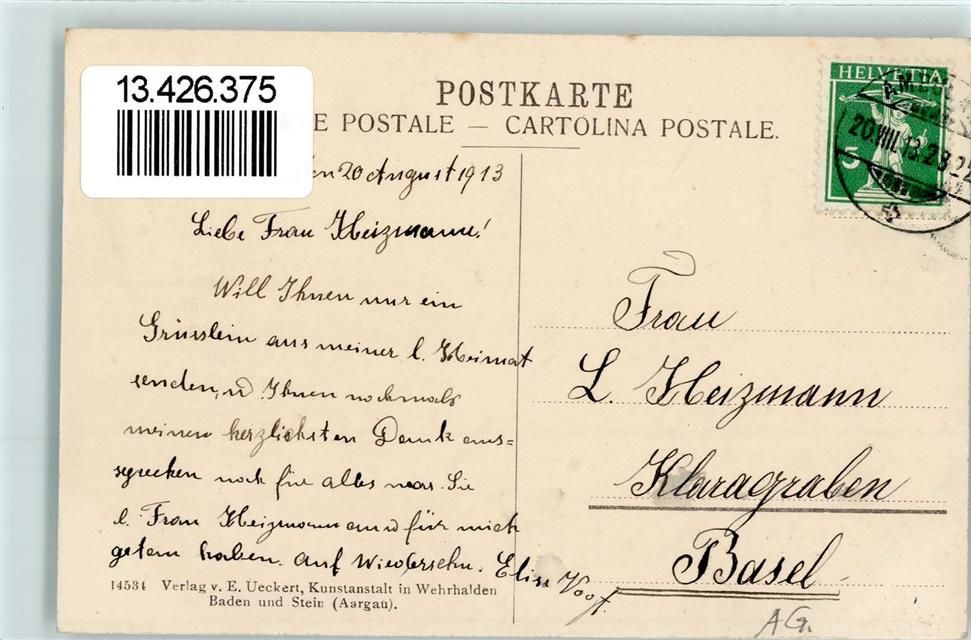 13.426.375
POSTKARTE
E POSTALE — CARTOLINA POSTALE.
HELVETIA
5
20.VIII.13.
20 August 1913
Liebe Frau Heizmann!
Will Ihnen nur ein
Grüsslein aus meiner l. Heimat
senden, u Ihnen nochmals
meinen herzlichsten Dank aus=
sprecken noch für alles was Sie
l. Frau Heizmann an u für mich
getan haben. Auf Wiedersehn. Elise Vogt.
Frau
L. Heizmann
Klaragraben
Basel
AG.
14534 Verlag v. E. Ueckert, Kunstanstalt in Wehrhalden
Baden und Stein (Aargau).